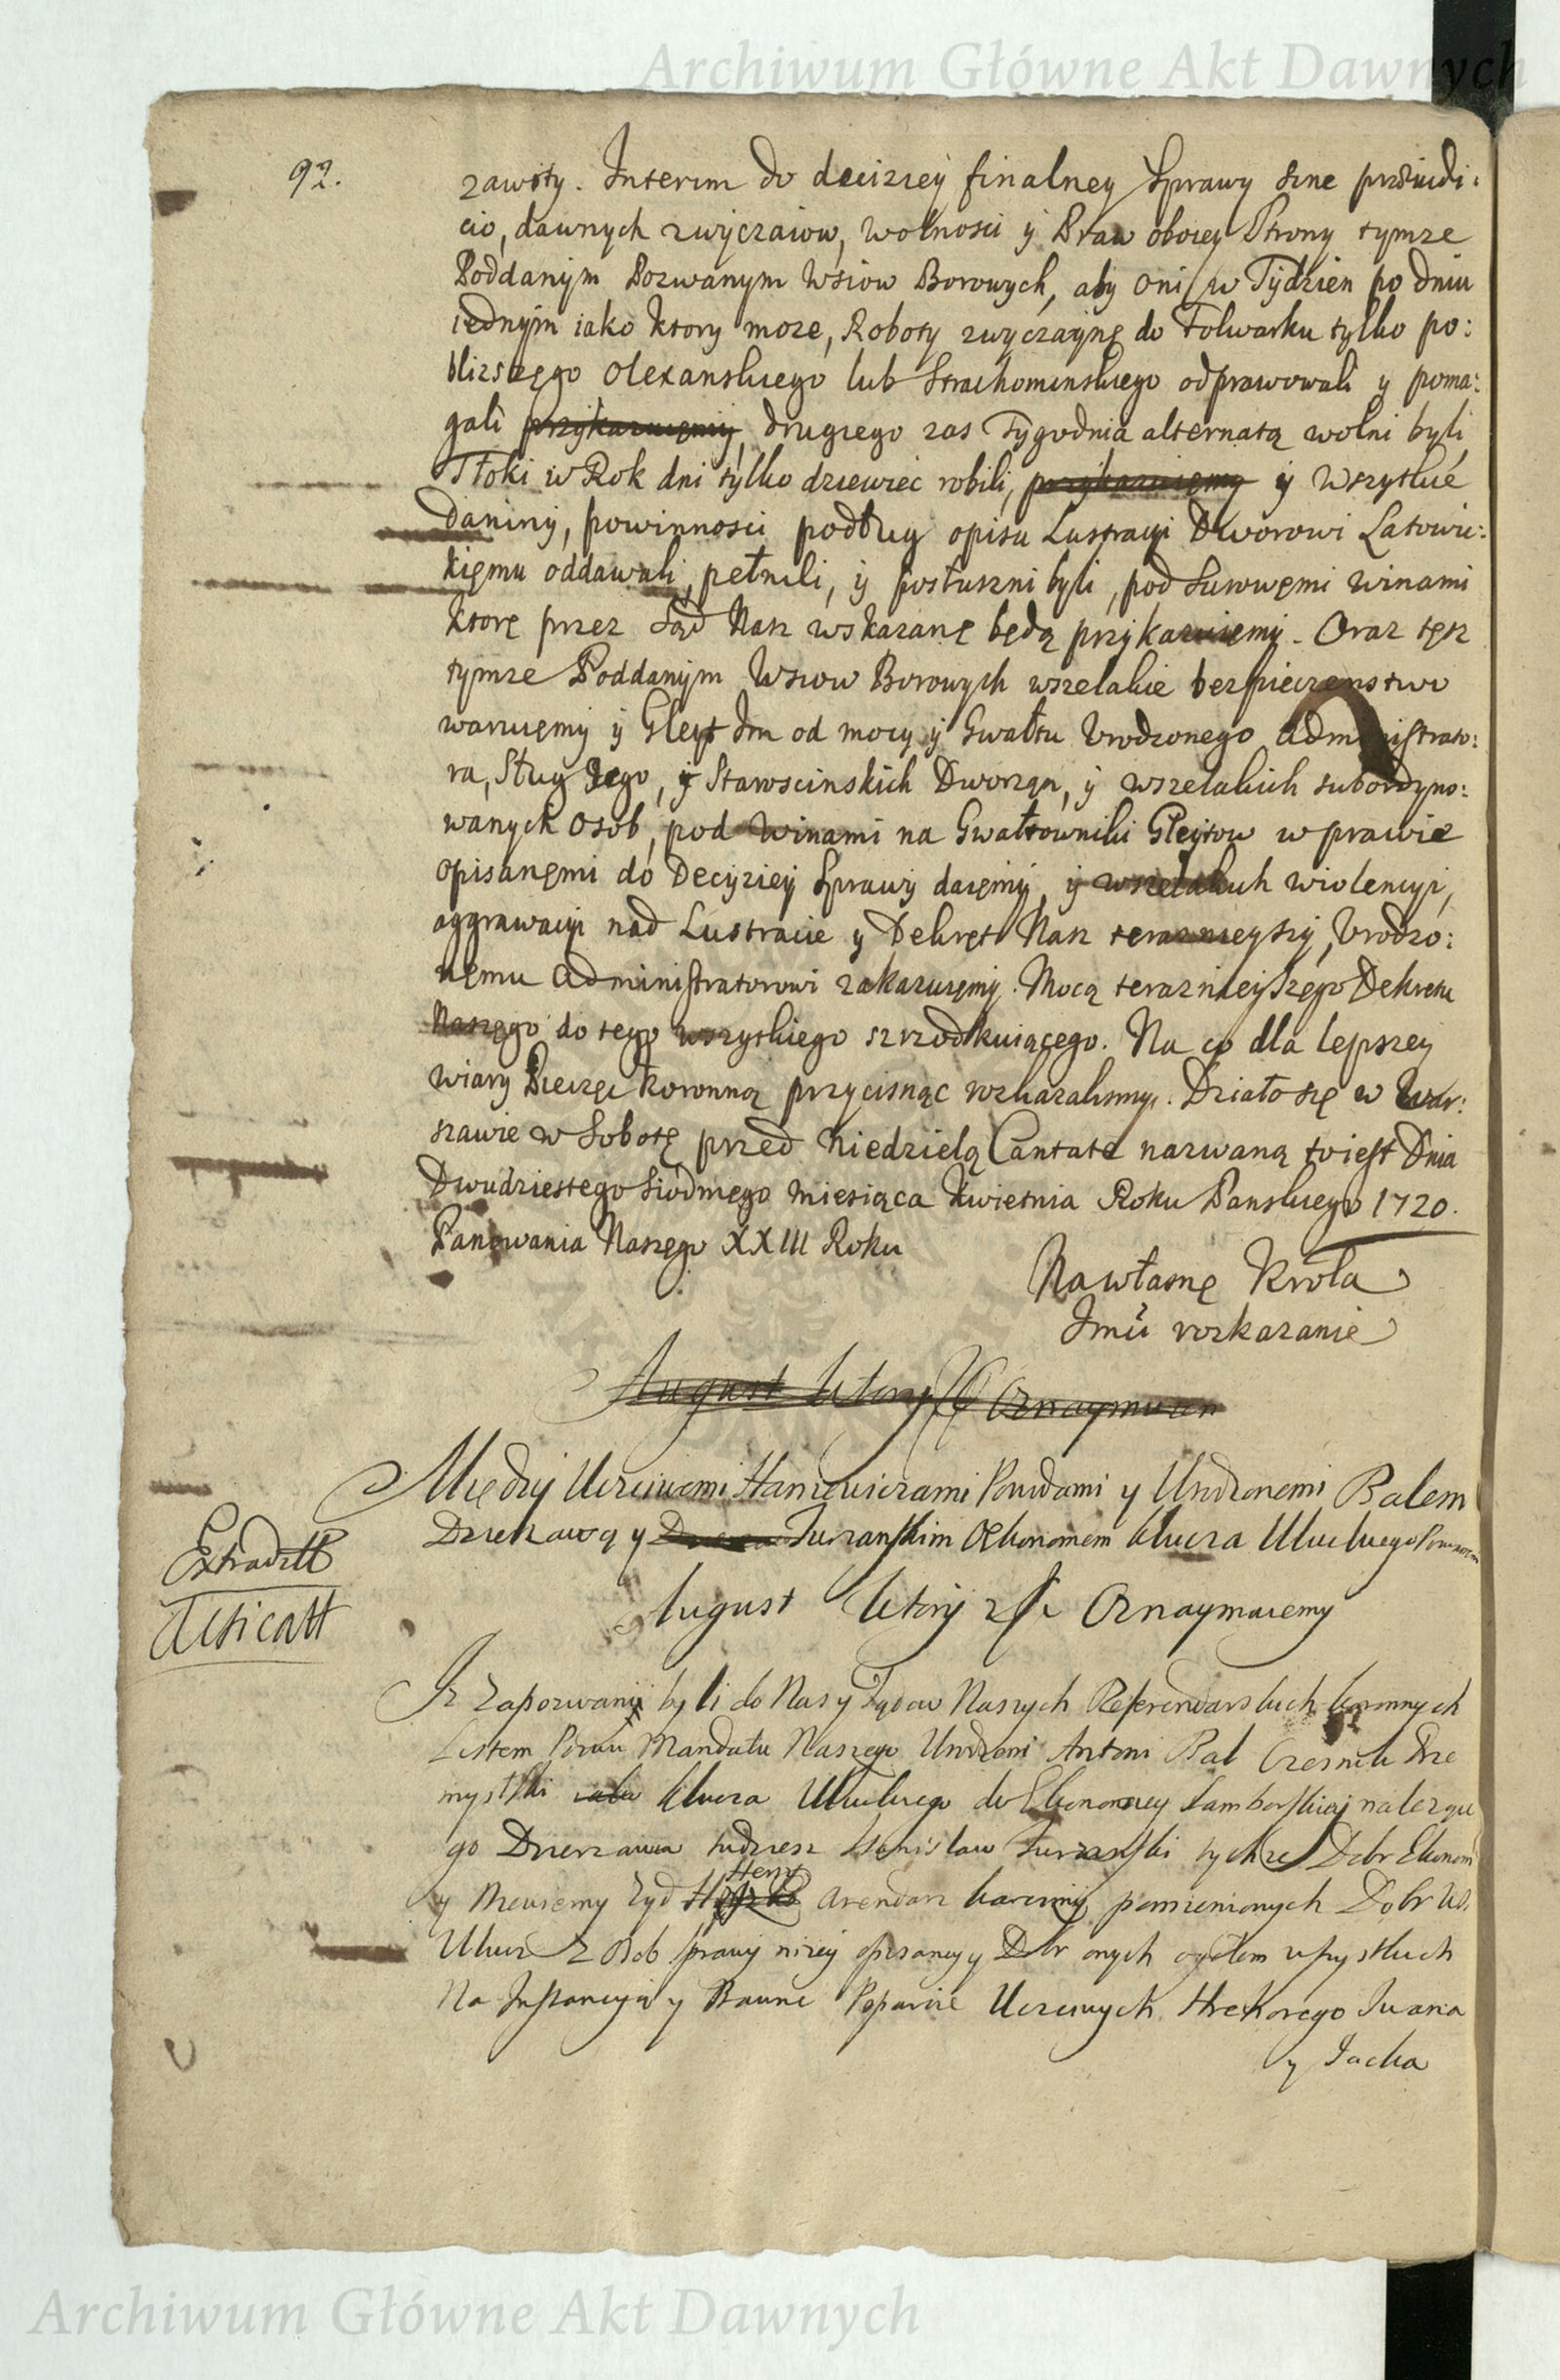 Archiwum Główne Akt Dawnych
92.
zawisły. Interim do deciziey finalney Sprawy sine preiudi:
cio, dawnych zwyczaiow, wolnosci ÿ Praw oboiey Strony tymze
Poddanÿm Pozwanym Wsiow Borowych, aby oni w Tÿdzien po dniu
iednÿm iako ktory moze, Roboty zwÿczaÿnę do Folwarku tylko po:
blizszęgo Olexanskiego lub Strachominskiego odprawowali y poma:
gali przÿkazuięmÿ, drugiego zas Tÿgodnia alternatą wolni byli
Tłoki w Rok dni tylko dziewięc robili, przÿkazuięmÿ ÿ wszytkie
daninÿ, powinnosci podług opisu Lustracÿi Dworowi Latowic:
kięmu oddawali, pełnili, ÿ posłuszni byli, pod Surowęmi winami
ktorę przez Sąd Nasz wskazanę będą przÿkazuięmÿ. Oraz tęsz
tymze Poddanÿm Wsiow Borowych wszelakie bezpieczenstwo
waruięmy ÿ Gleyt Im od mocy ÿ Gwałtu Vrodzonego Administrato:
ra, Sług Jego, ÿ Staroscinskich Dworzan, ÿ wszelakich subordyno:
wanych Osob, pod winami na Gwałtowniki Gleÿtow w prawie
opisanęmi do Decÿzieÿ Sprawÿ daięmÿ, ÿ wszelakich wiolencyi,
aggrawacÿi nad Lustracie y Dekręt Nasz teraznieÿszÿ, Vrodzo:
nęmu Administratorowi zakazuięmÿ. Mocą teraznieÿszęgo Dekretu
Naszęgo do tego wszytkiego szrzodkuiącego. Na co dla lepszeÿ
wiary Pieczęc koronną przycisnąc rozkazalismy. Działo się w War:
szawie w Sobotę przed Niedzielą Cantate nazwaną to iest Dnia
Dwudziestego Siodmego Miesiąca Kwietnia Roku Panskiego 1720.
Panowania Naszęgo XXIII Roku
Na własnę Krola
Jmci rozkazanie
August Wtory Oznaymuiem
Miedzÿ Uczciwemi Haniewiczami Powodami y Urodzonemi Balem
Dzierzawcą y Turzanskim Ekonomem klucza
Extradtt
August Wtory Oznaymuiemy
Iz Zapozwani byli do Nas y Sądow Naszych Referendarskich koronnych
Listem Mandatu Naszego Urodzeni Antoni Bal Czesnik Prze
myslski klucza do Ekonomiey Samborskiej nalezące
go Dzierzawca tudziesz Stanislaw Turzanski tychze Dobr Ekonom
y Niewierny Zyd arendarz karczmÿ pomienionych Dobr
z Osob Sprawÿ nizey opisaneÿ y Dobr onych ogołem wszystkich
Na Instancyą y Prawne Poparcie Uczciwych Hrehorego Iwana
y Jacka
Archiwum Główne Akt Dawnych